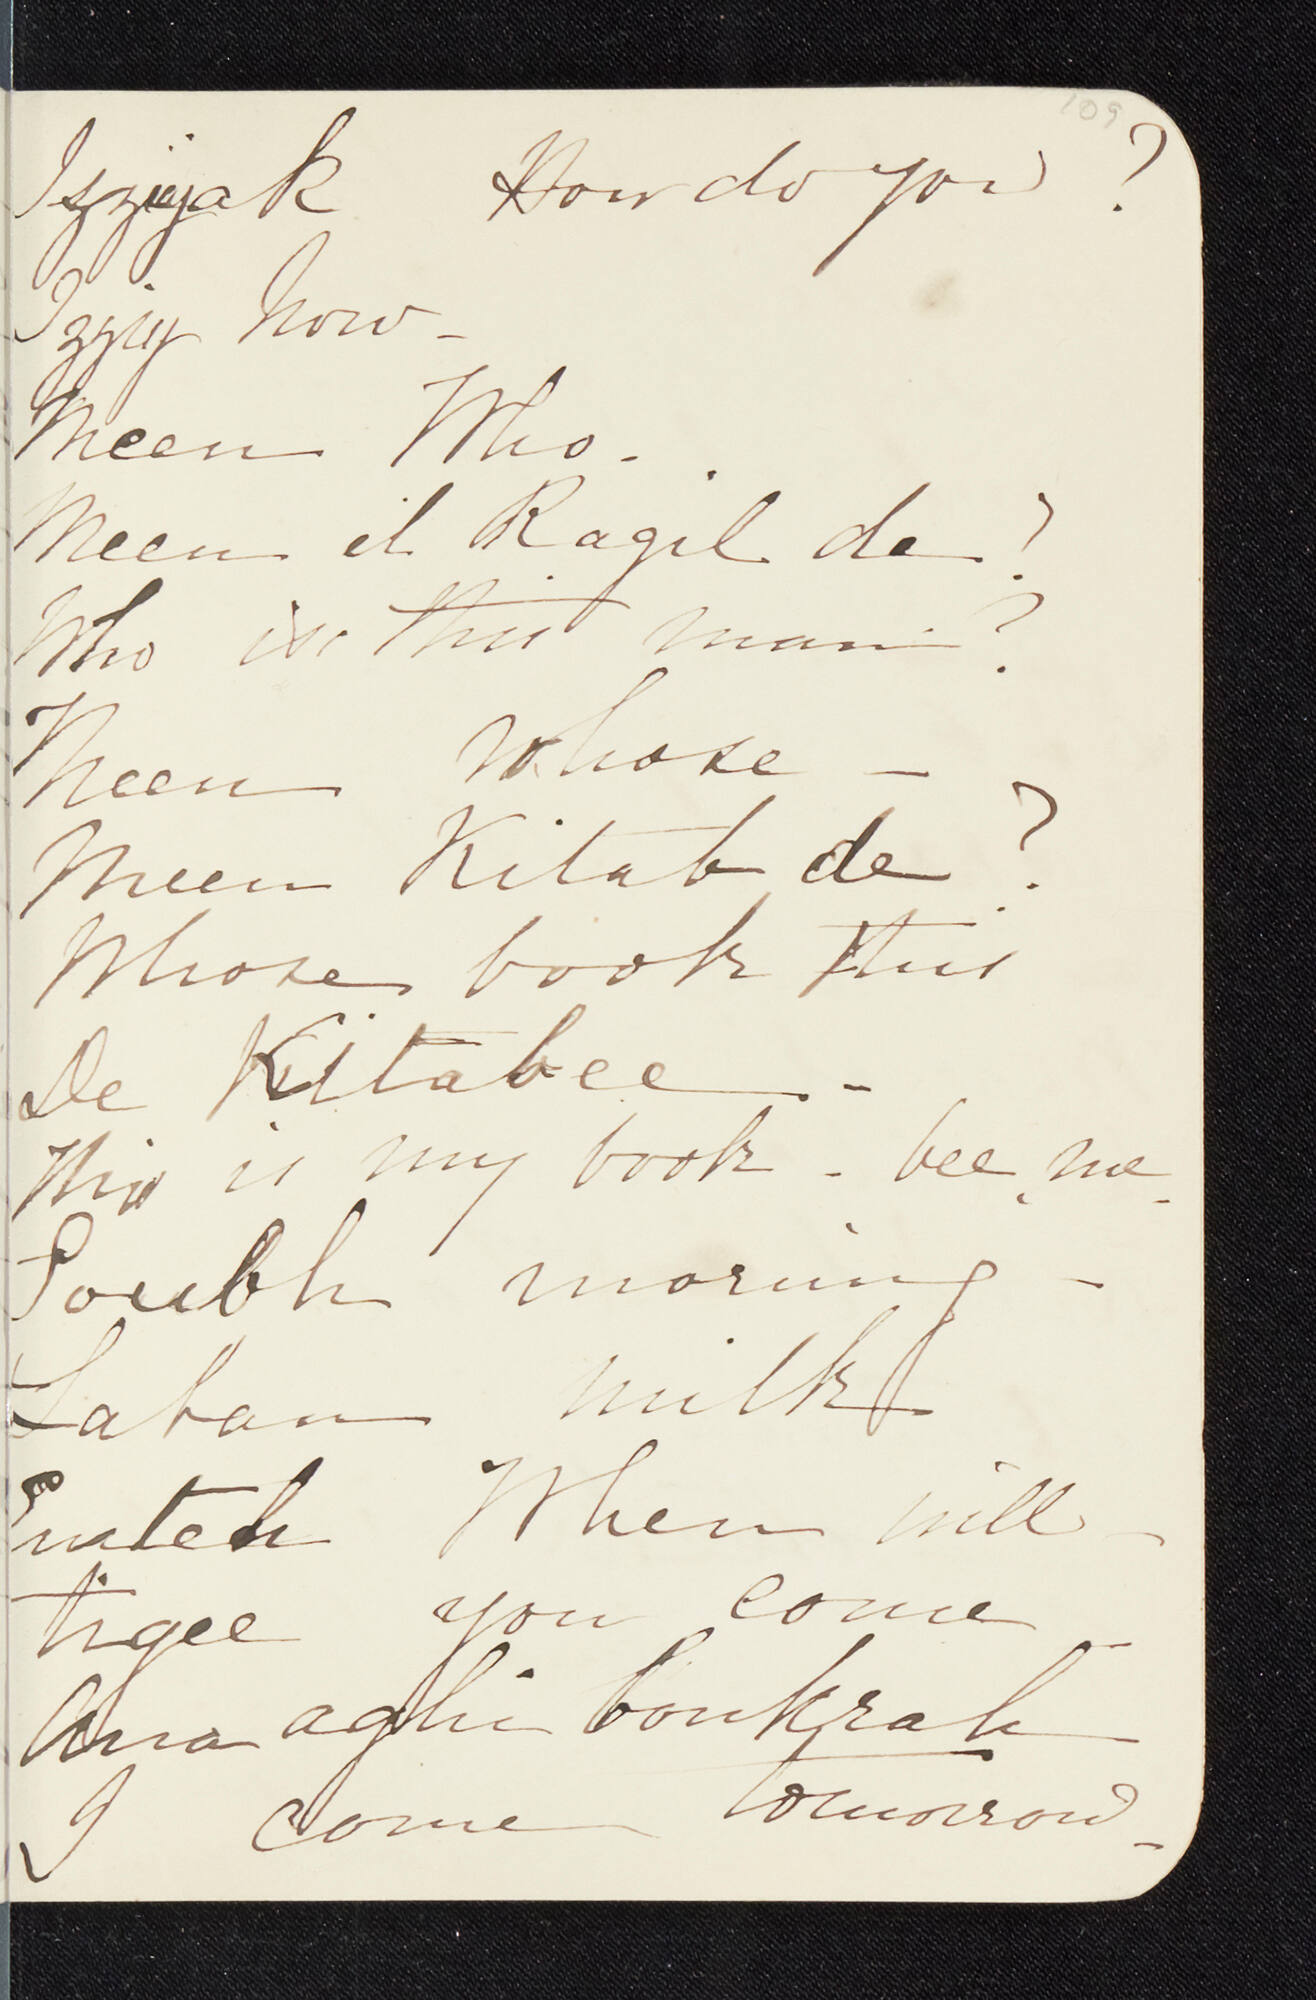 109
Izziyak How do you ?
Izziy how -
Meen Who -
Meen il Ragil de ?
Who is this man ?
Meen whose -
Meen Kitab de ?
Whose book this
De Kitabee -
This is my book - bee, me -
Soubh morning -
Laban milk
Emteh When will -
tigee you come -
Ana aghi boukrah
I come tomorrow -